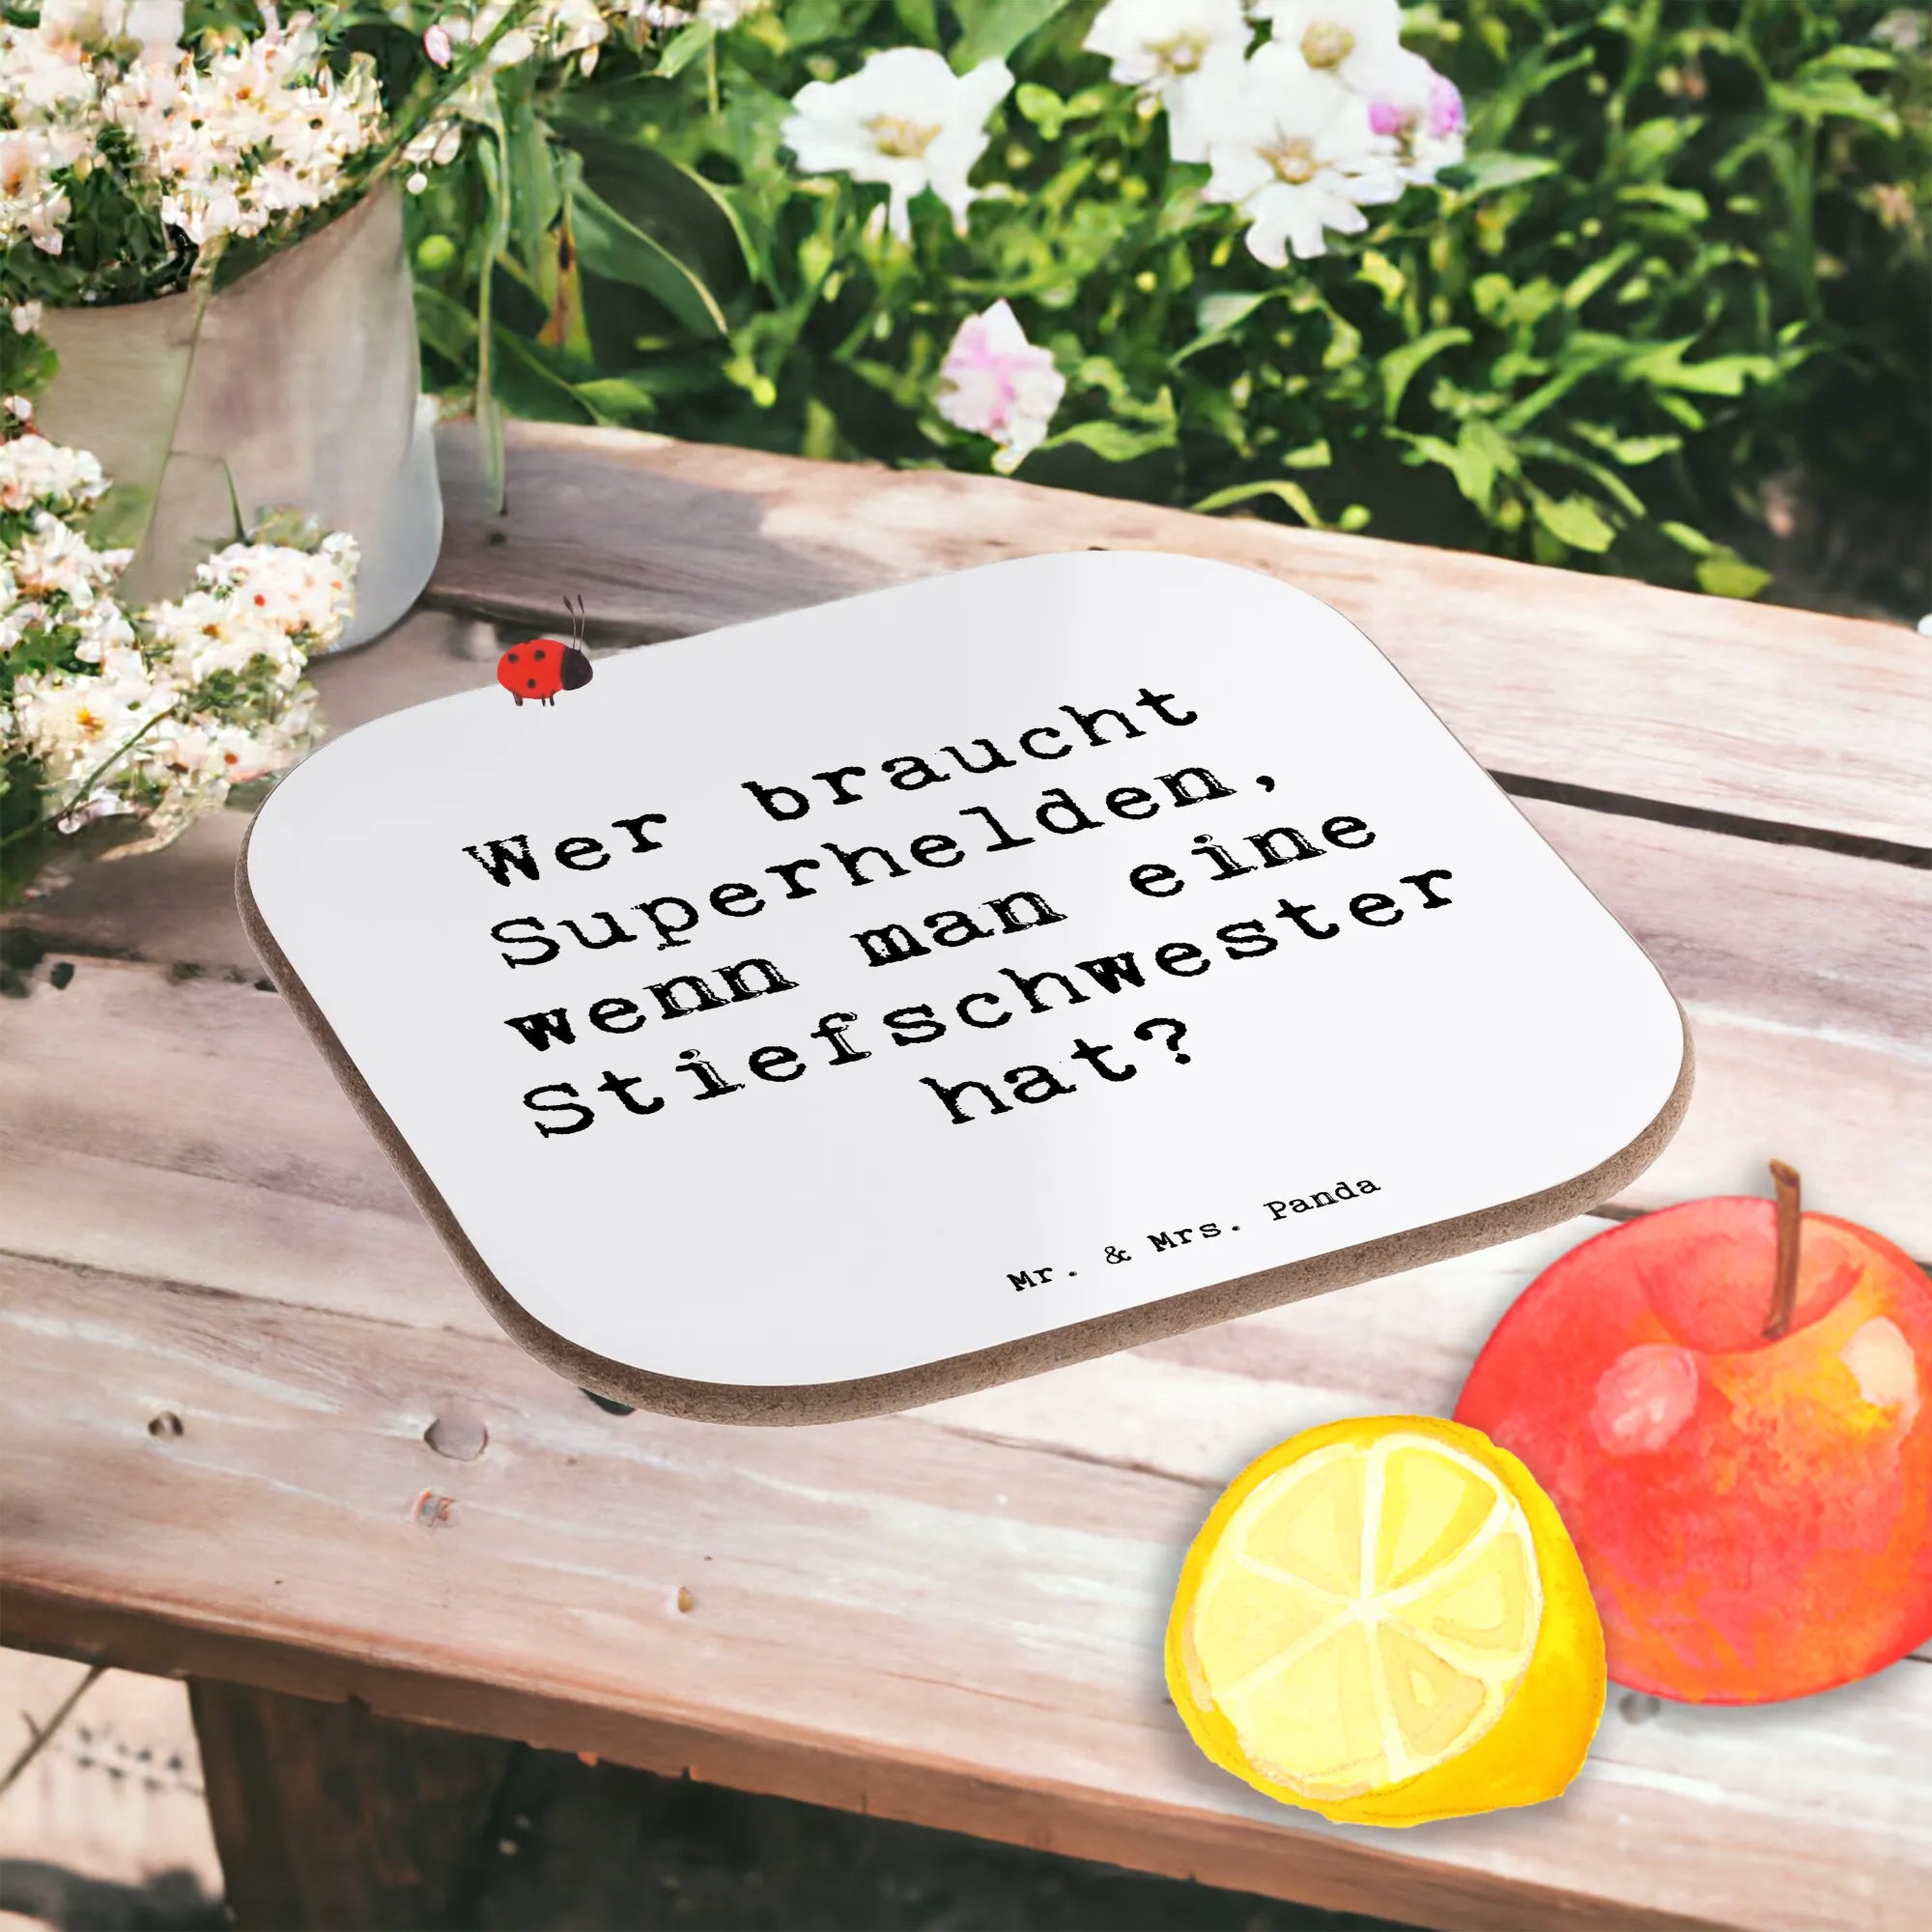 Wer braucht
Superhelden,
wenn man eine
Stiefschwester
hat?
Mr. & Mrs. Panda